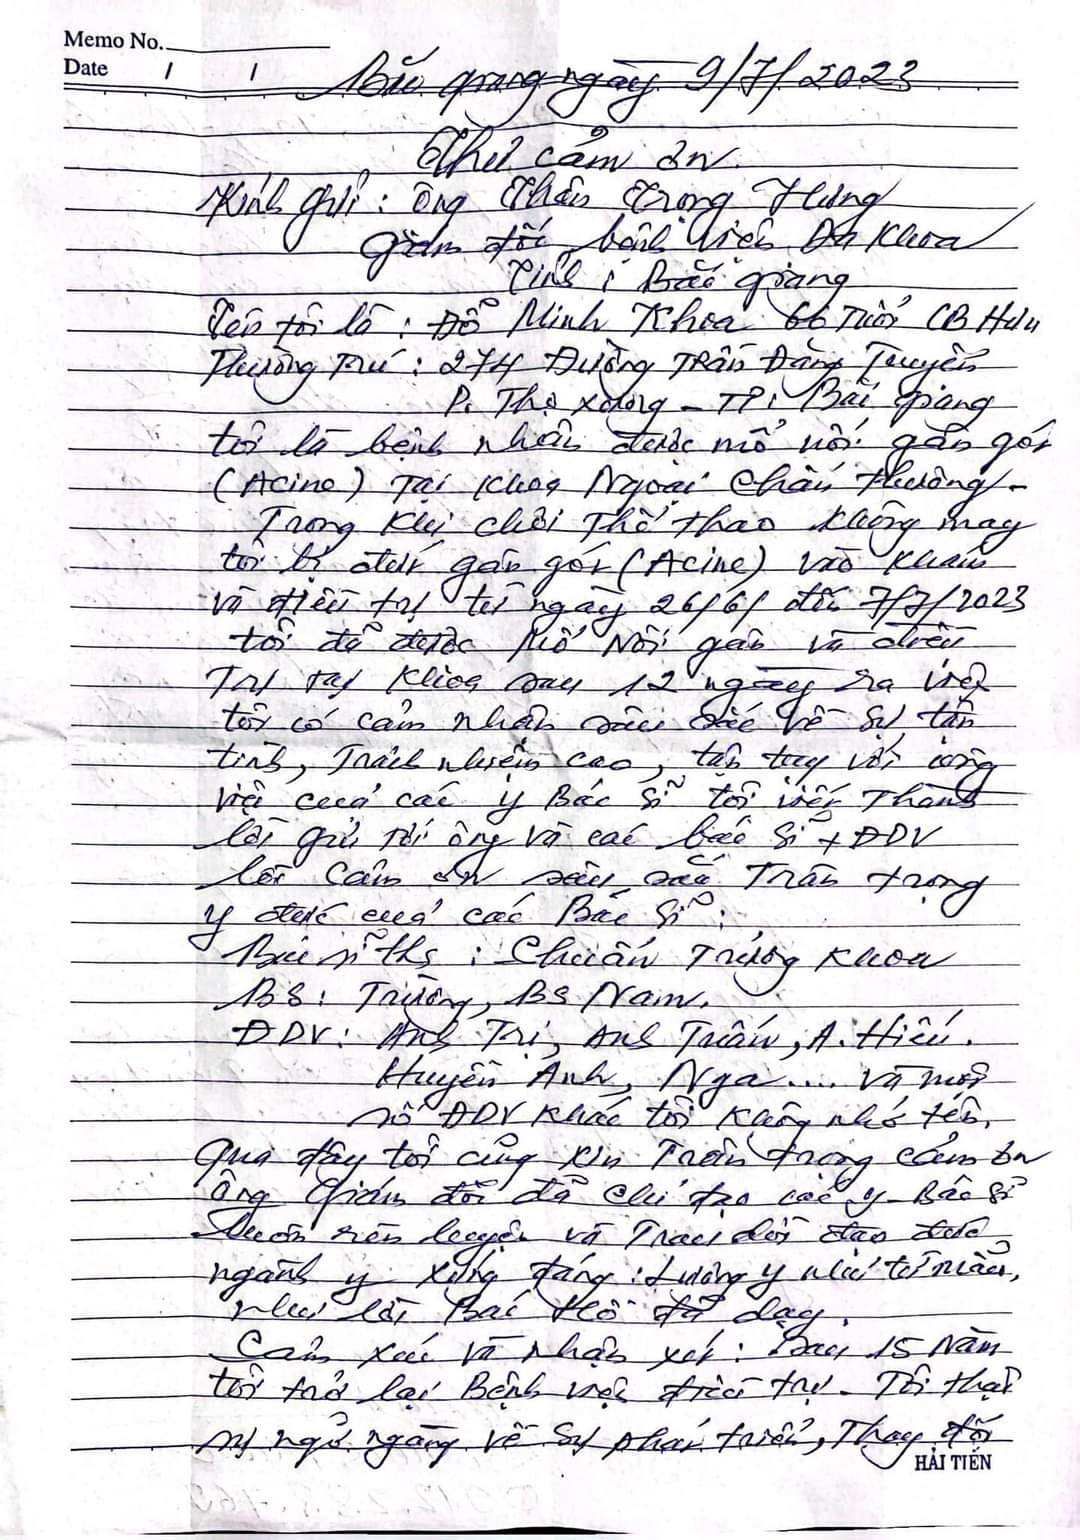 Memo No.
Date / /
Bắc giang ngày 9/7/2023
Thư cảm ơn
Kính gửi: Ông Thân Trọng Hưng
Giám đốc bệnh viện Đa Khoa
Tỉnh: Bắc giang
Tên tôi là: Đỗ Minh Khoa 66 Tuổi CB Hưu
Thường Trú: 274 Đường Trần Đăng Tuyển
P. Thọ xương - TP: Bắc giang
tôi là bệnh nhân được mổ nối gân gót
(Acine) Tại Khoa Ngoại Chấn thương -
Trong Khi chơi Thể thao không may
tôi bị đứt gân gót (Acine) vào khám
và điều trị từ ngày 26/6/ đến 7/7/2023
tôi đã được Mổ Nối gân và điều
Trị tại Khoa sau 12 ngày ra viện
tôi có cảm nhận sâu sắc về sự tận
tình, Trách nhiệm cao, tận tụy với công
việc của các y Bác sĩ tôi viết Thành
lời gửi tới ông và các bác sĩ + ĐDV
lời Cảm ơn sâu sắc Trân trọng
y đức của các Bác Sĩ:
Bác sĩ ths: Chuẩn Trưởng Khoa
BS: Trường, BS Nam.
ĐDV: Anh Trị, Anh Tuấn, A. Hiếu.
Huyền Anh, Nga .... và một
số ĐDV Khác tôi Không nhớ tên.
Qua đây tôi cũng xin Trân trọng cảm ơn
Ông Giám đốc đã chỉ đạo các y Bác sĩ
luôn rèn luyện và Trau dồi đạo đức
ngành y xứng đáng: Lương y như từ mẫu,
như lời Bác Hồ đã dạy.
Cảm xúc và nhận xét: Sau 15 Năm
tôi trở lại Bệnh viện điều trị. Tôi thật
sự ngỡ ngàng về sự phát triển, Thay đổi
HẢI TIẾN